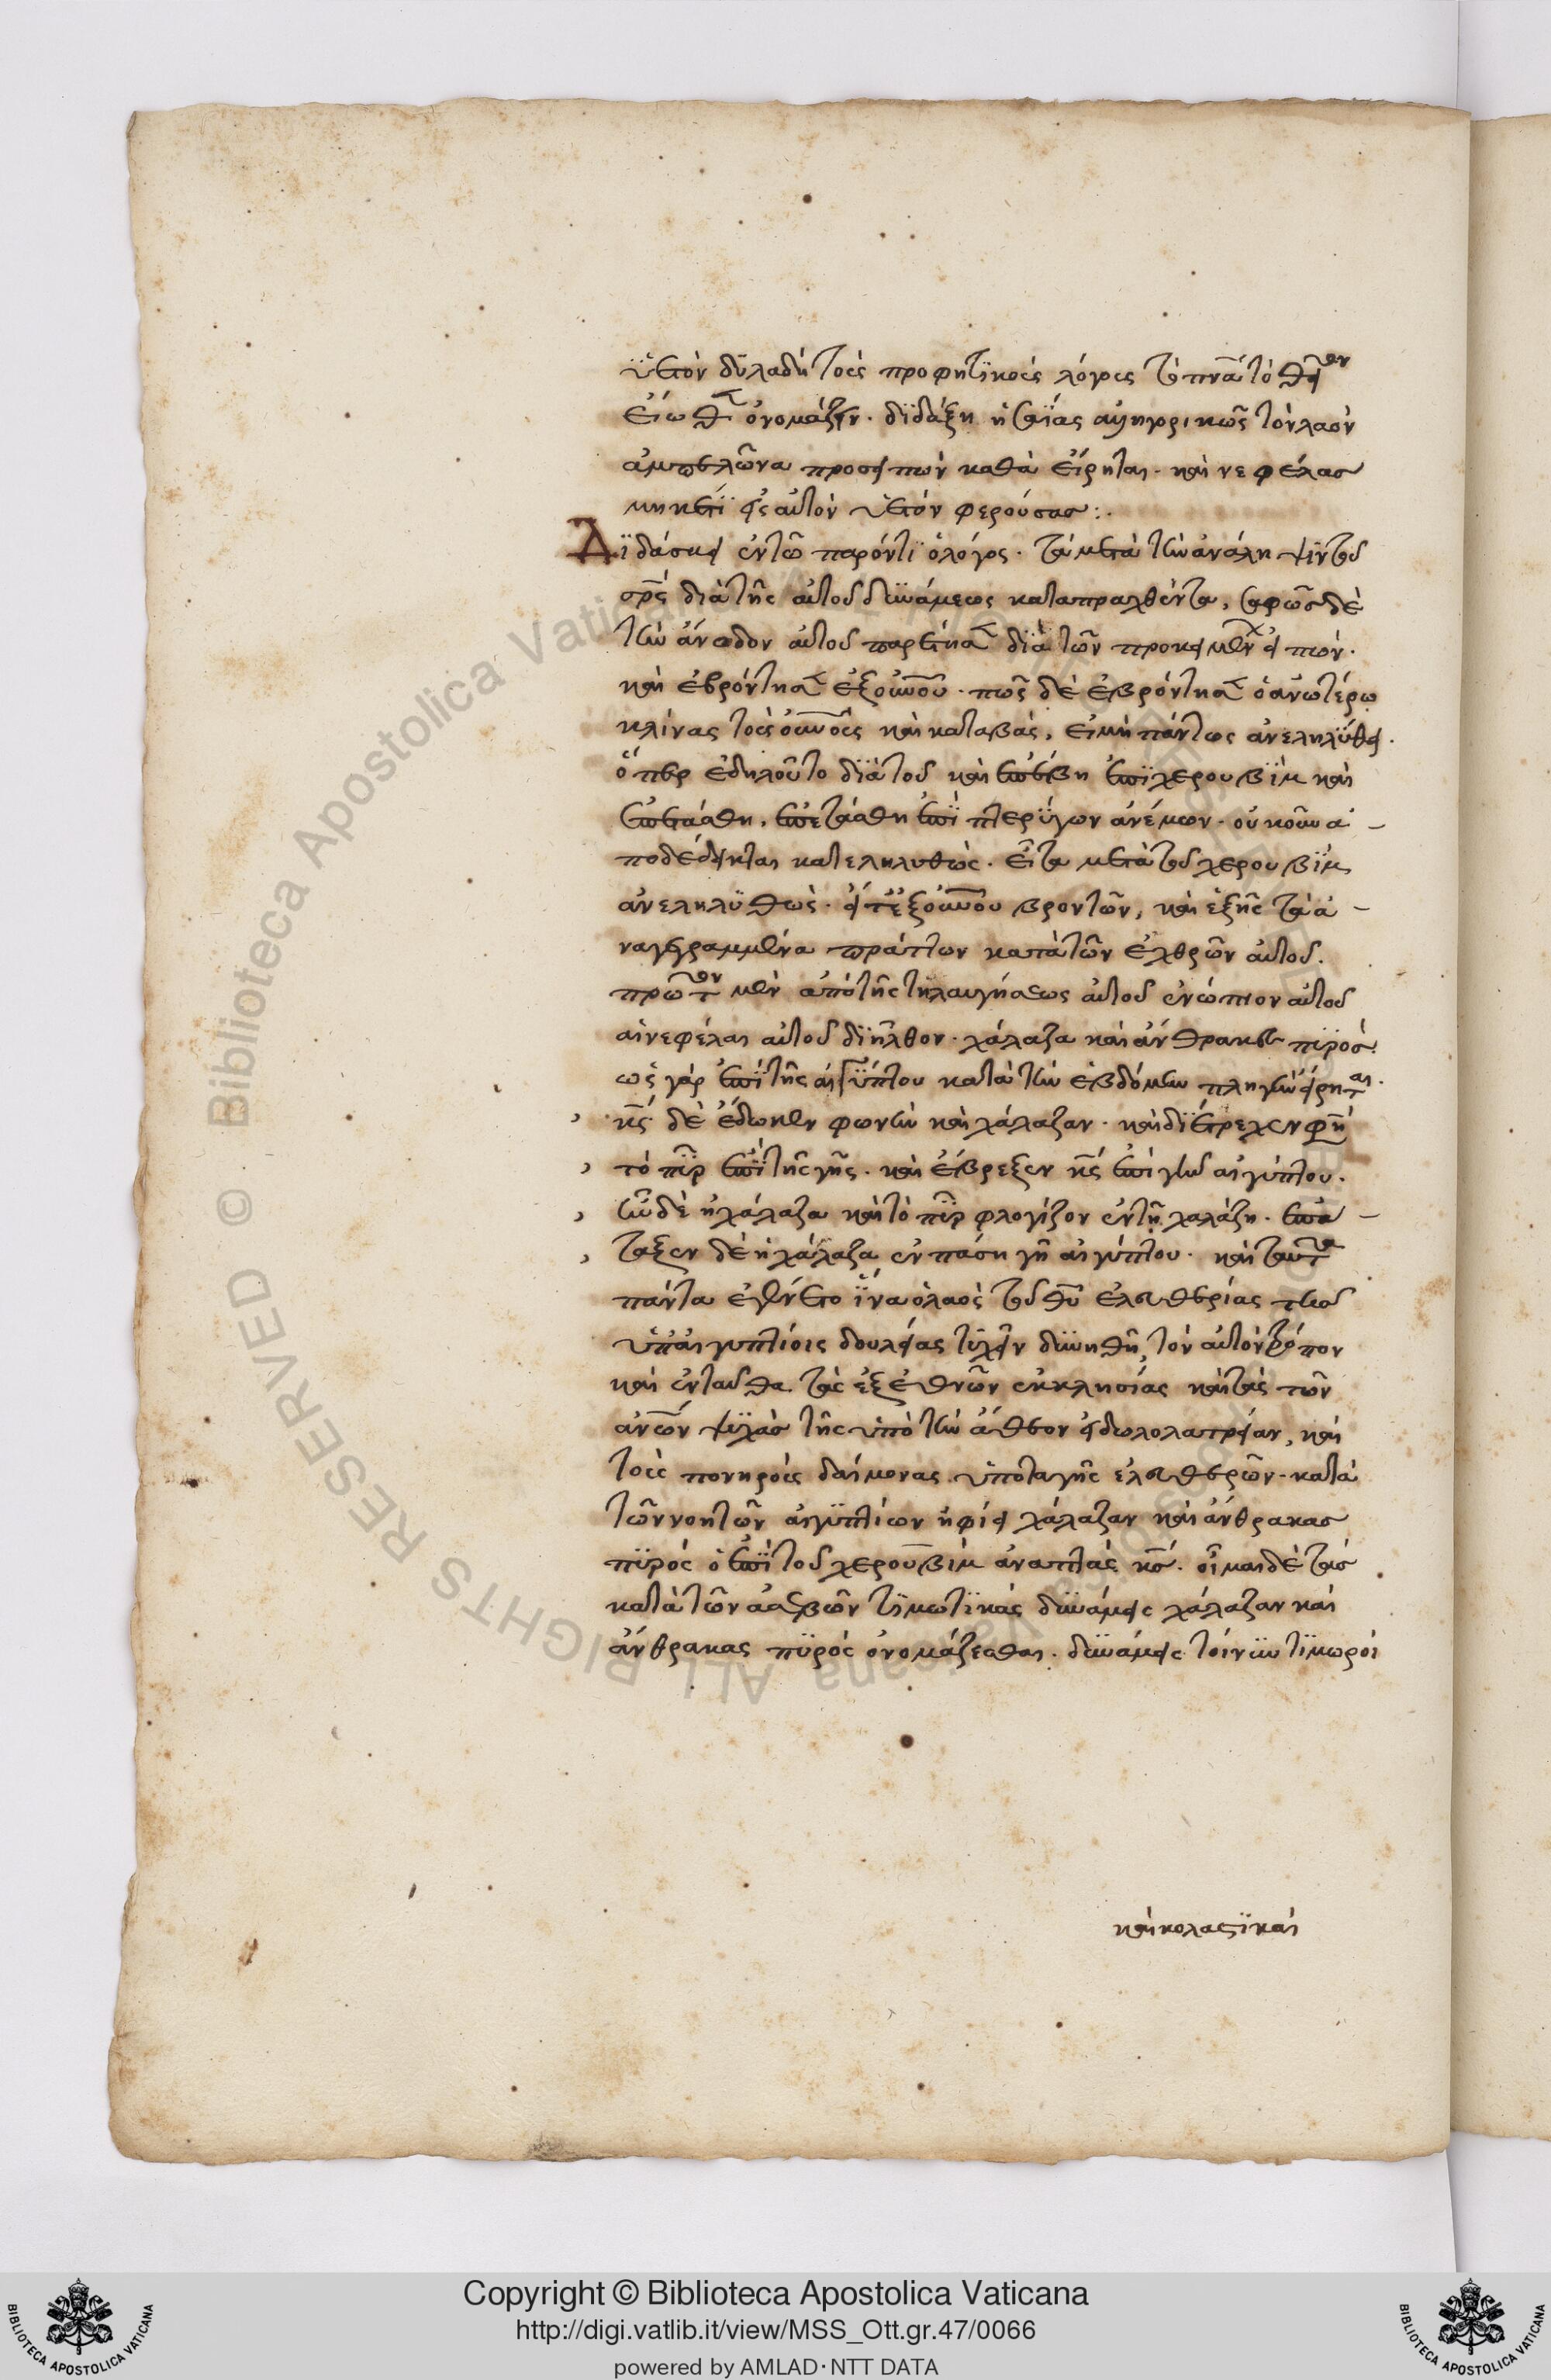 ὑετὸν δηλαδὴ τοὺς προφητικοὺς λόγους τὸ πνᾶ τὸ θεῖον
εἴωθεν ὀνομάζειν. διδάξη ἡσαΐας ἀλληγορικῶς τὸν λαὸν
ἀμπελῶνα προσειπὼν καθὰ εἴρηται. καὶ νεφέλας
μηκέτι εἰς αὐτὸν ὑετὸν φερούσας:.
Διδάσκει ἐν τῶ παρόντι ὁ λόγος. τὰ μετὰ τὴν ἀνάληψιν τοῦ
σρς διὰ τῆς αὐτοῦ δυνάμεως καταπραχθέντα, σαφῶς δὲ
τὴν ἄνοδον αὐτοῦ παρέστησε διὰ τῶν προκειμένων εἰπών.
καὶ ἐβρόντησεν ἐξ οὐνοῦ. πῶς δὲ ἐβρόντησεν ὁ ἀνωτέρω
κλίνας τοὺς οὐνοὺς καὶ καταβὰς, εἰ μὴ πάντως ἀνεληλύθει.
ὅπερ ἐδηλοῦτο διὰ τοῦ καὶ ἐπέβη ἐπὶ χερουβὶμ καὶ
ἐπετάσθη, ἐπετάσθη ἐπὶ πτερύγων ἀνέμων. οὐκοῦν ἀ-
ποδέδεικται κατεληλυθὼς. εἶτα μετὰ τοῦ χερουβὶμ
ἀνεληλυθὼς. εἶτ' ἐξ οὐνοῦ βροντῶν, καὶ ἑξῆς τὰ ἀ-
ναγεγραμμένα πράττων κατὰ τῶν ἐχθρῶν αὐτοῦ.
πρῶτον μὲν ἀπὸ τῆς τηλαυγήσεως αὐτοῦ ἐνώπιον αὐτοῦ
αἱ νεφέλαι αὐτοῦ διῆλθον. χάλαζα καὶ ἄνθρακες πυρός.
ὡς γὰρ ἐπὶ τῆς αἰγύπτου κατὰ τὴν ἑβδόμην πληγὴν εἴρηται.
κς δὲ ἔδωκεν φωνὴν καὶ χάλαζαν. καὶ διέτρεχεν φησὶ
τὸ πῦρ ἐπὶ τῆς γῆς. καὶ ἔβρεξεν κς ἐπὶ γῆν αἰγύπτου.
ἦν δὲ ἡ χάλαζα καὶ τὸ πῦρ φλογίζον ἐν τῆ χαλάζη. ἐπά-
ταξεν δὲ ἡ χάλαζα ἐν πάση γῆ αἰγύπτου. καὶ ταῦτα
πάντα ἐγένετο ἵνα ὁ λαὸς τοῦ θυ ἐλευθερίας τῆς
ὑπ' αἰγυπτίοις δουλείας τυχεῖν δυνηθῆ, τὸν αὐτὸν τρόπον
καὶ ἐνταῦθα τὰς ἐξ ἐθνῶν ἐκκλησίας καὶ τὰς τῶν
ἀνων ψυχὰς τῆς ὑπὸ τὴν ἄθεον εἰδωλολατρείαν, καὶ
τοὺς πονηροὺς δαίμονας ὑποταγῆς ἐλευθερῶν. κατὰ
τῶν νοητῶν αἰγυπτίων ἠφίει χάλαζαν καὶ ἄνθρακας
πυρὸς ὁ ἐπὶ τοῦ χερουβὶμ ἀναπτὰς κς. οἶμαι δὲ τὰς
κατὰ τῶν ἀσεβῶν τιμωτικάς δυνάμεις χάλαζαν καὶ
ἄνθρακας πυρὸς ὀνομάζεσθαι. δυνάμεις τοίνυν τιμωροὶ
καὶ κολαστικαὶ
Copyright © Biblioteca Apostolica Vaticana
http://digi.vatlib.it/view/MSS_Ott.gr.47/0066
powered by AMLAD·NTT DATA